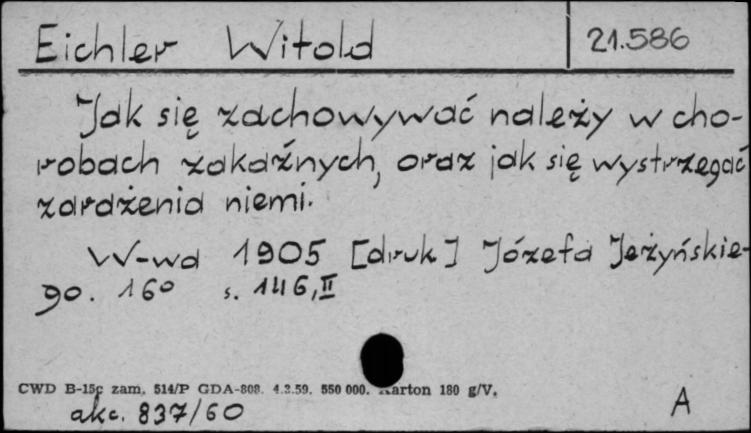 Eichler Witold 21.586
Jak się zachowywać należy w cho-
robach zakaźnych, oraz jak się wystrzegać
zarażenia niemi.
W-wa 1905 [druk] Józefa Jeżyńskie-
go. 16° s. 146, II
CWD B-15c zam. 514/P GDA-808. 4.2.59. 550 000. Karton 180 g/V.
akc. 837/60 A